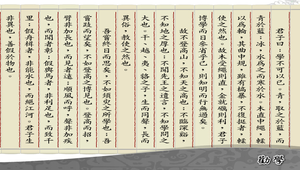 君子曰：學不可以已。青，取之於藍，而
青於藍；冰，水為之，而寒於水。木直中繩，輮
以為輪，其曲中規，雖有槁暴，不復挺者，輮
使之然也。故木受繩則直，金就礪則利，君子
博學而日參省乎己，則知明而行無過矣。
故不登高山，不知天之高也；不臨深谿，
不知地之厚也；不聞先王之遺言，不知學問之
大也。干、越、夷、貉之子，生而同聲，長而
異俗，教使之然也。
吾嘗終日而思矣，不如須臾之所學也；吾
嘗跂而望矣，不如登高之博見也。登高而招，
臂非加長也，而見者遠；順風而呼，聲非加疾
也，而聞者彰；假輿馬者，非利足也，而致千
里；假舟楫者，非能水也，而絕江河。君子生
非異也，善假於物也。
勸學